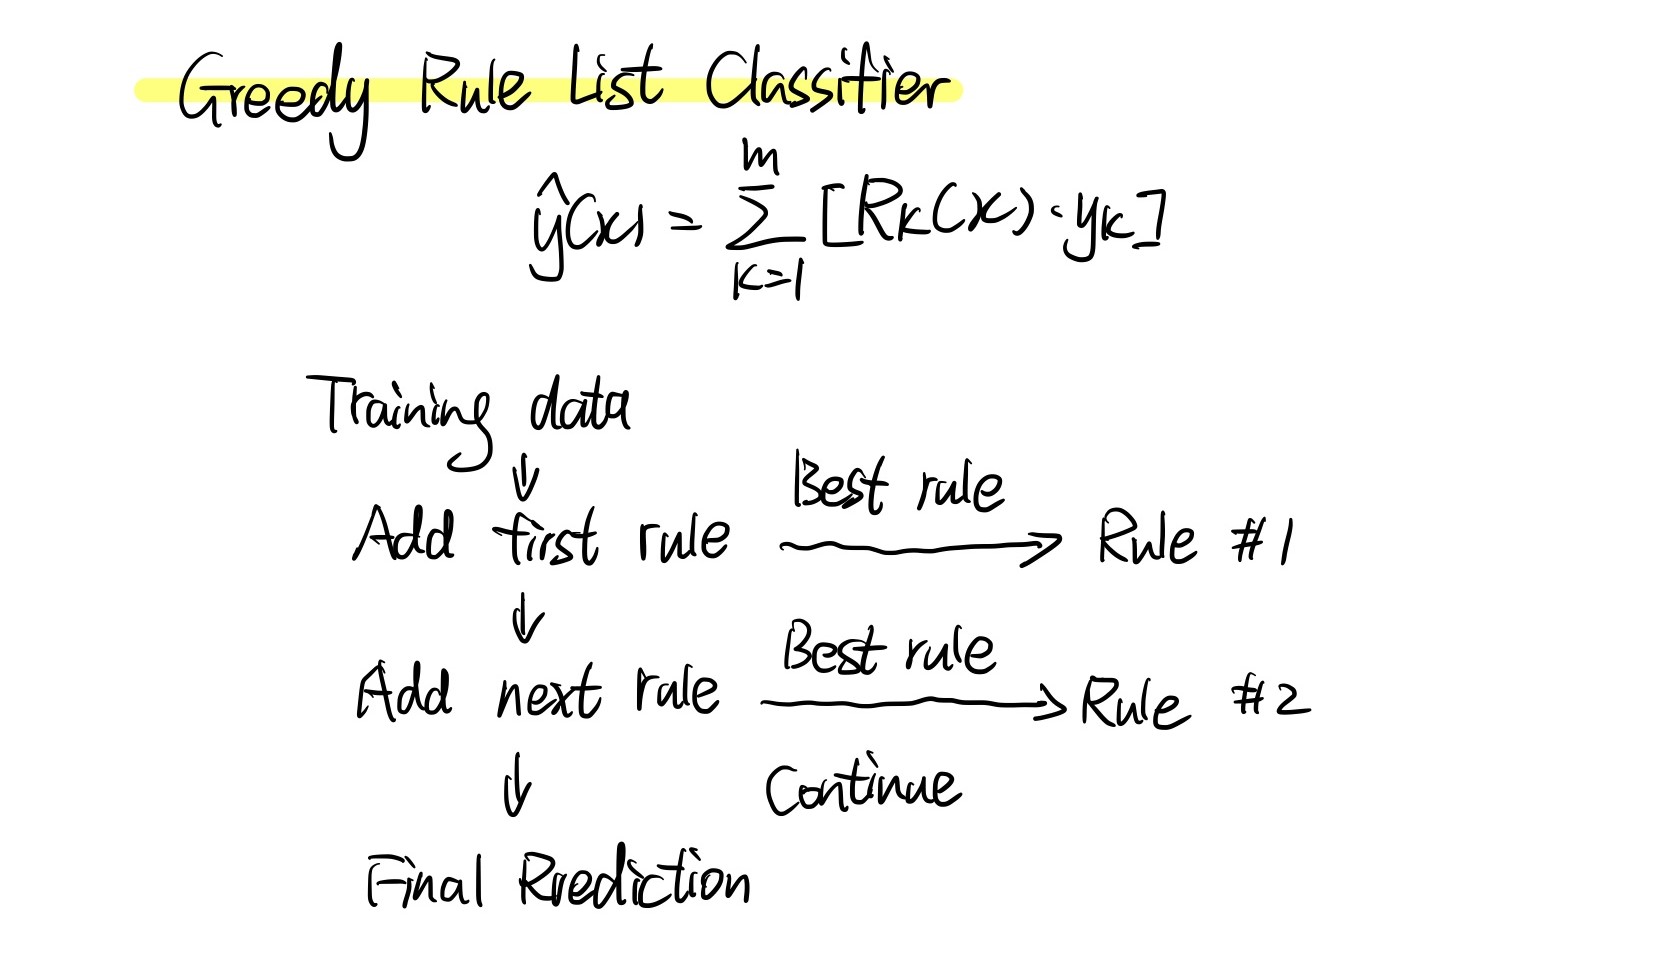 Greedy Rule List Classifier
ŷ(x) = ∑_{k=1}^{m} [R_k(x) · y_k]
Training data
↓
Best rule
Add first rule → Rule #1
↓
Best rule
Add next rule → Rule #2
↓ Continue
Final Prediction